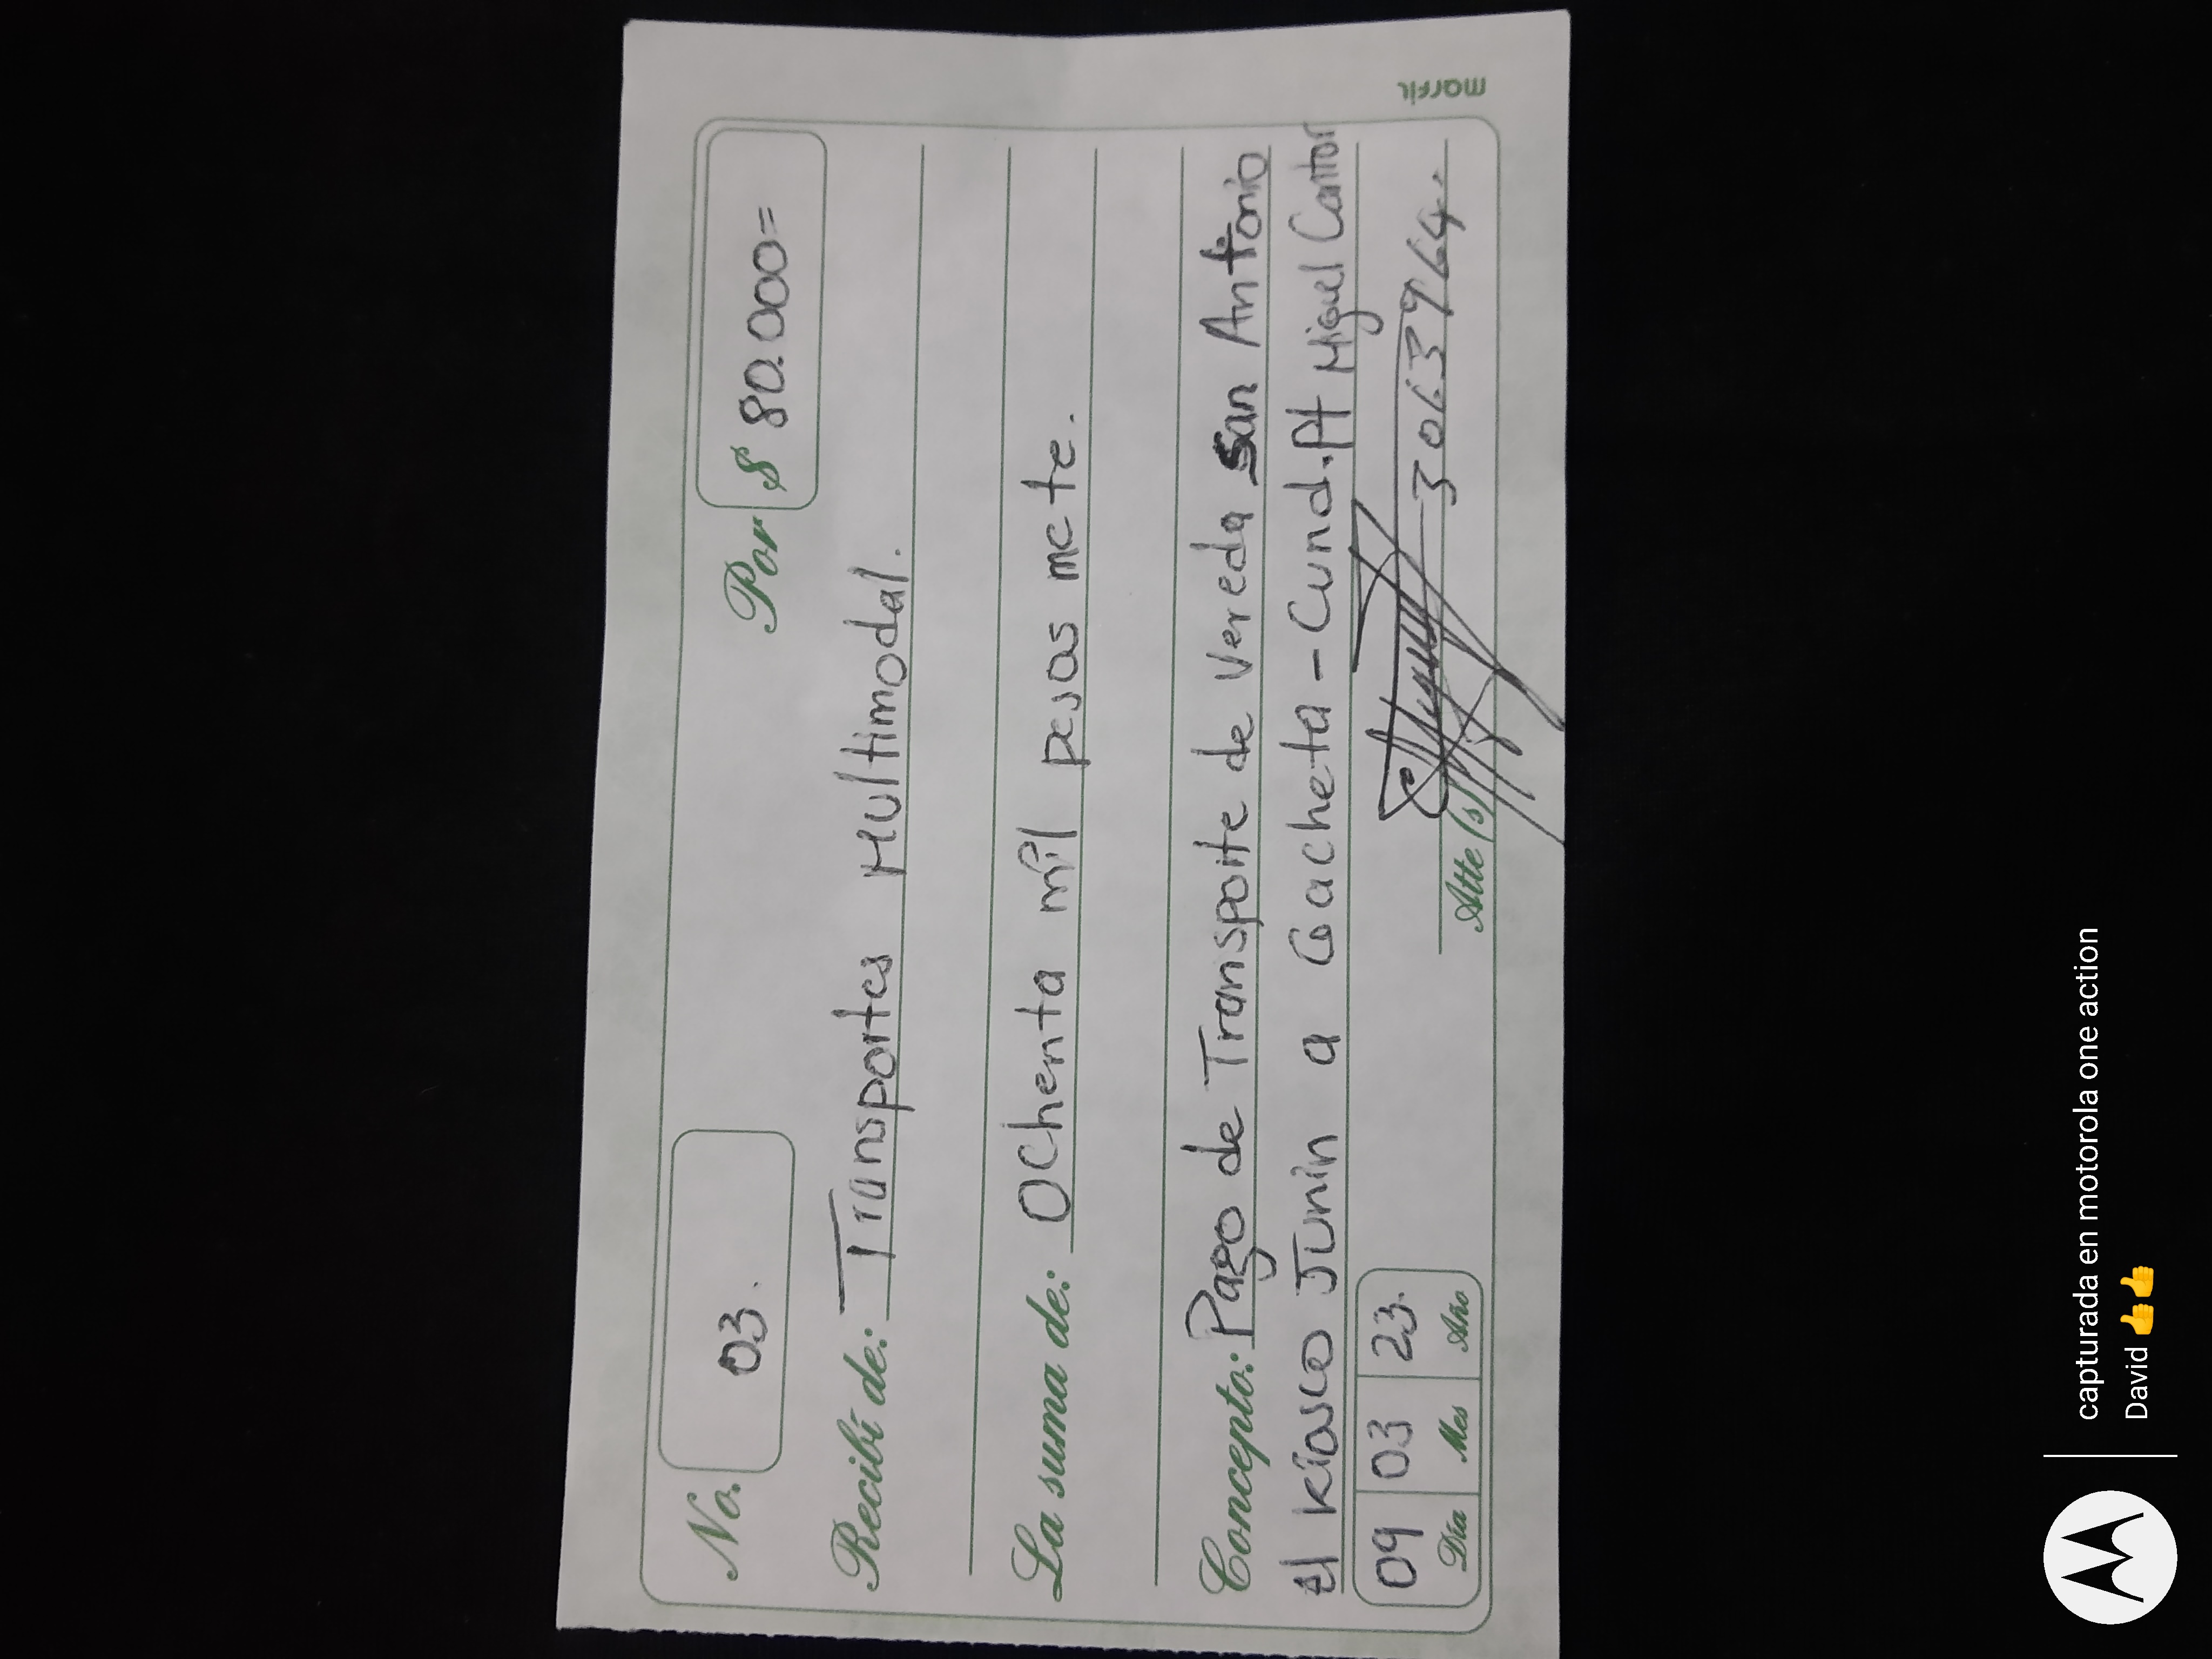 No. 03. Por $ 80.000=
Recibí de: Transportes Multimodal.
La suma de: Ochenta mil pesos mcte.
Concepto: Pago de Transporte de Vereda San Antonio
El Kiosco Junin a Gacheta - Cund. Pt Miguel Cantor
09 03 23.
Día Mes Año
3063964
Atte (s)
marfil
capturada en motorola one action
David 👍👍